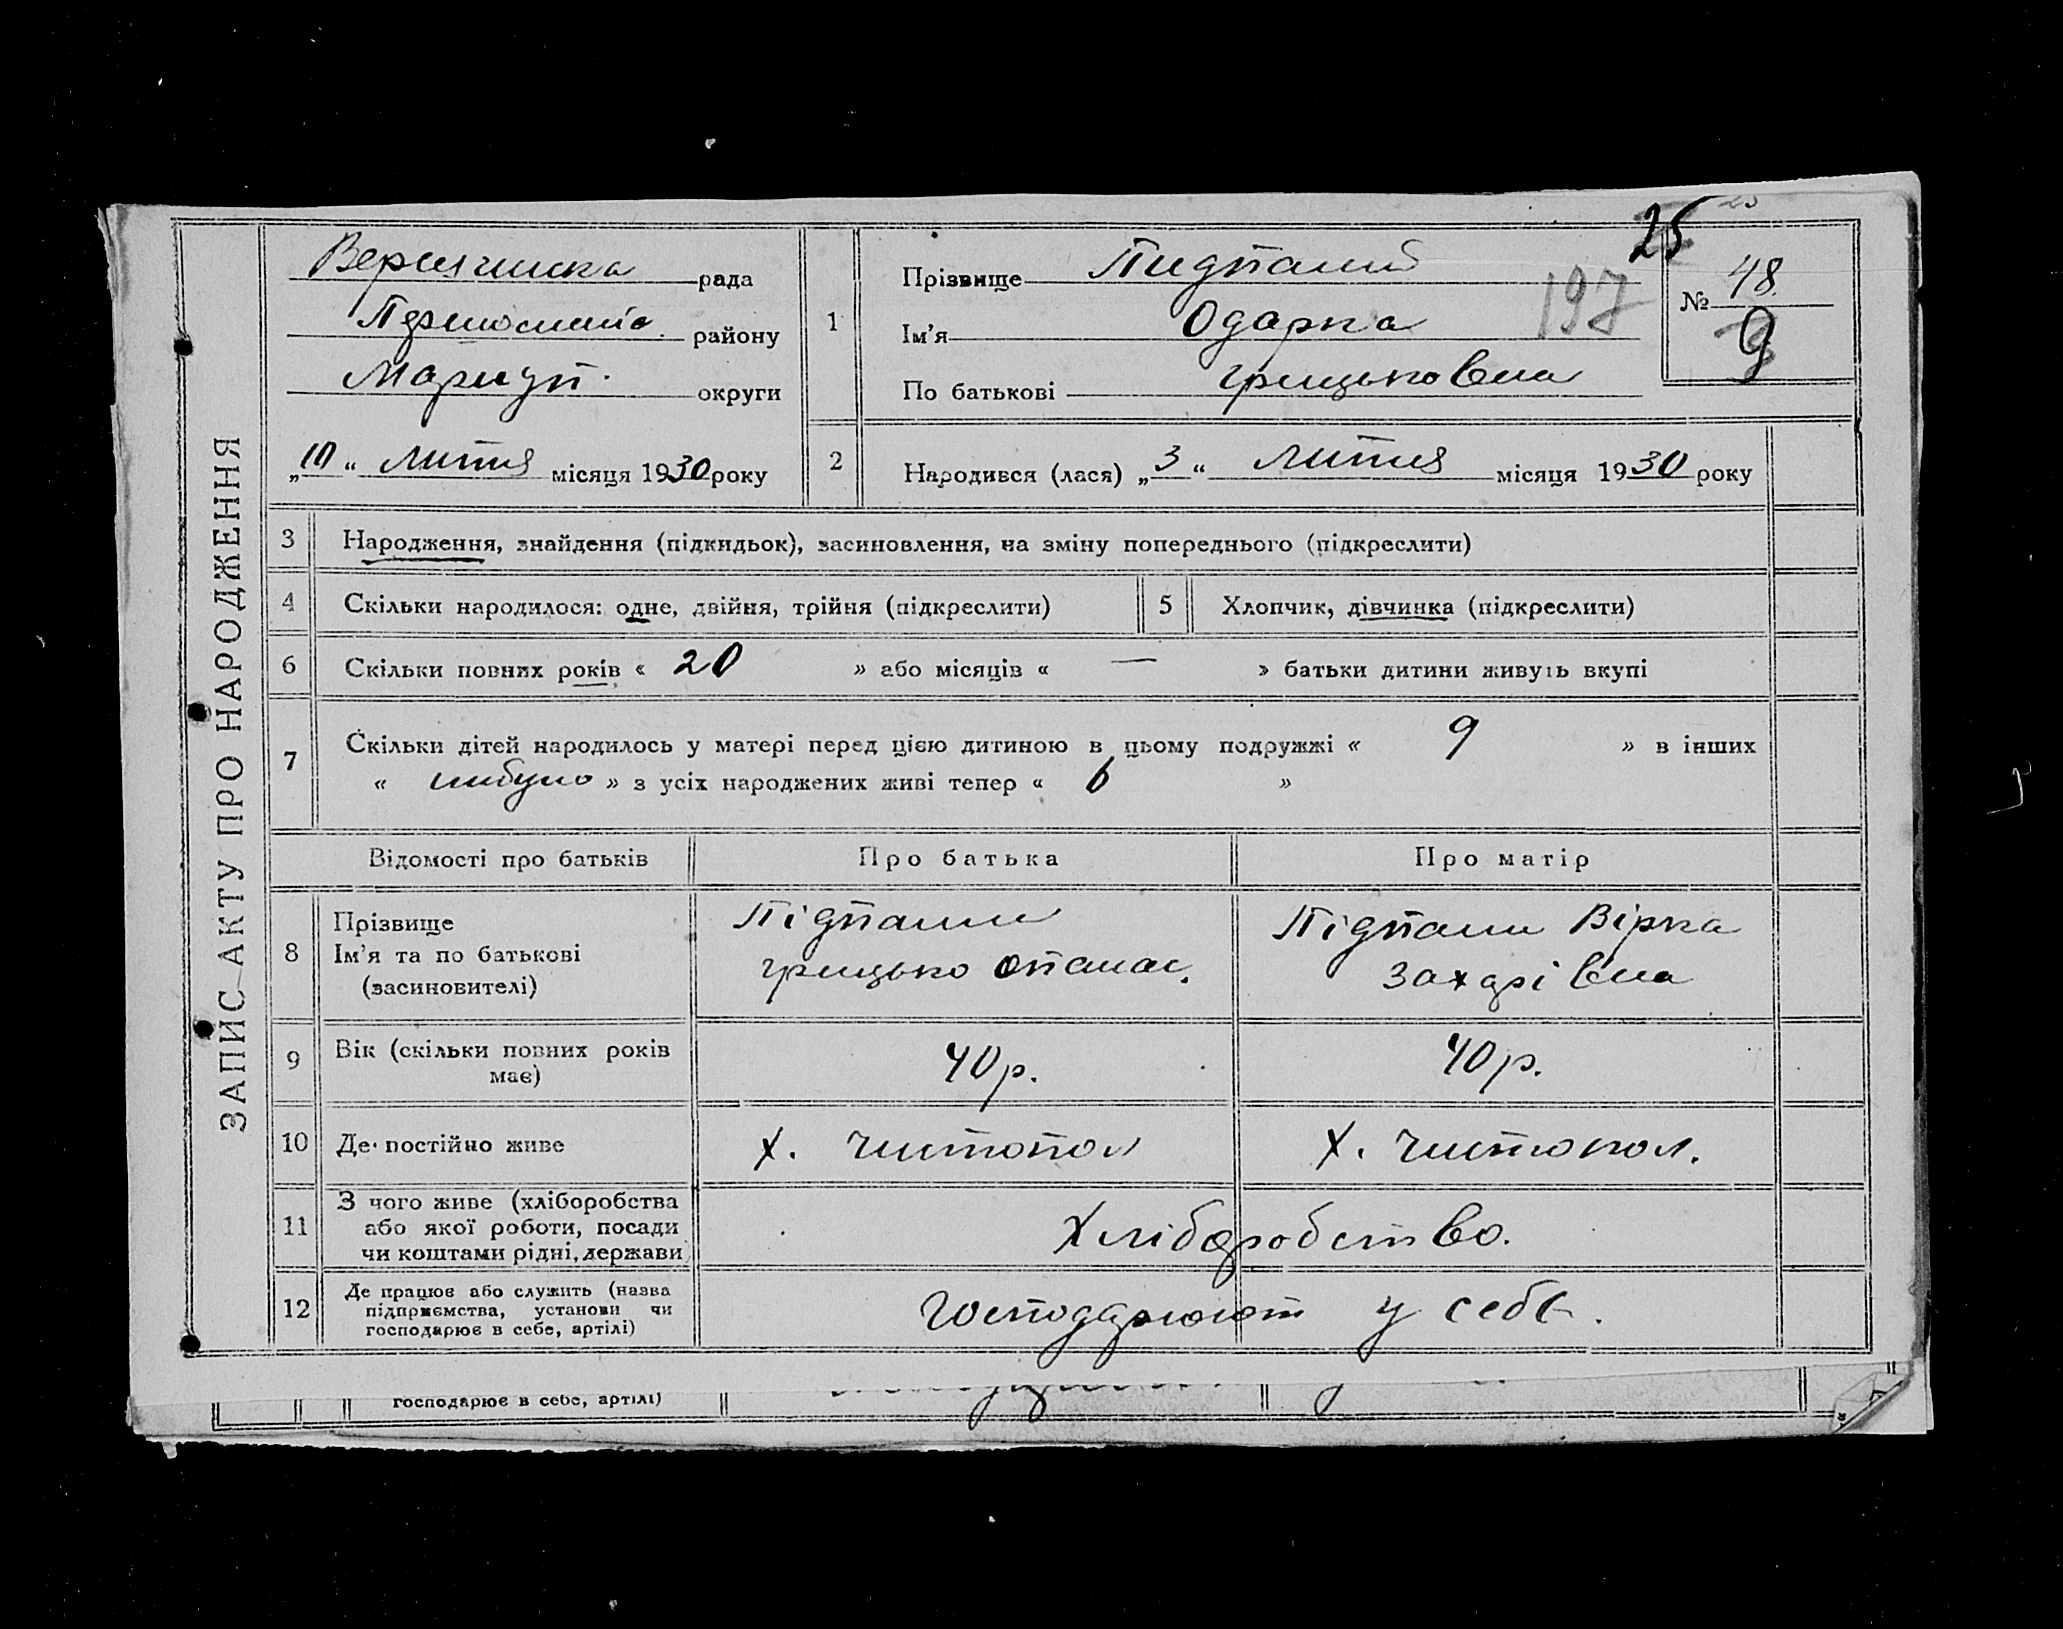 25
ЗАПИС АКТУ ПРО НАРОДЖЕННЯ
рада
району
Мариуп. округи
„10“ липня місяця 1930 року
1
Прізвище Пидпалий
Ім'я Одарка
По батькові Грицьковна
197
№ 48.
9
2
Народився (лася) „3“ липня місяця 1930 року
3 Народження, знайдення (підкидьок), засиновлення, на зміну попереднього (підкреслити)
4 Скільки народилося: одне, двійня, трійня (підкреслити)
5 Хлопчик, дівчинка (підкреслити)
6 Скільки повних років « 20 » або місяців « — » батьки дитини живуть вкупі
7 Скільки дітей народилось у матері перед цією дитиною в цьому подружжі « 9 » в інших
« нибуло » з усіх народжених живі тепер « 6 »
Відомості про батьків
Про батька
Про матір
8
Прізвище
Ім'я та по батькові
(засиновителі)
Підпали
Грицько Опанас.
Підпали Вірка
Захарівна
9 Вік (скільки повних років
має)
40 р.
40 р.
10 Де постійно живе
х. Чистопол
х. Чистопол.
11
З чого живе (хліборобства
або якої роботи, посади
чи коштами рідні, держави
Хліборобство.
12
Де працює або служить (назва
підприємства, установи чи
господарює в себе, артілі)
Господарюют у себе.
господарює в себе, артілі)